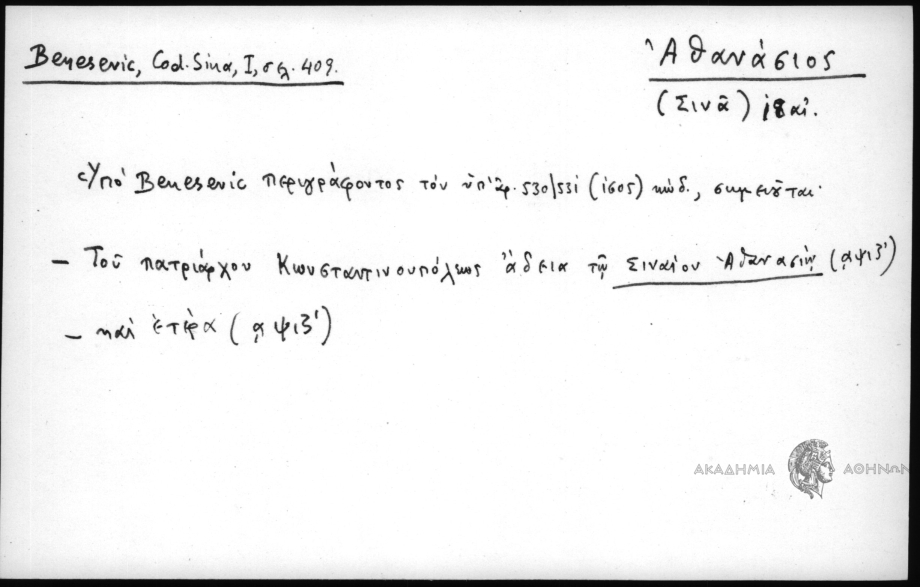 Benesevic, Cod. Sina, I, σελ. 409.
Ἀθανάσιος
(Σινᾶ) 18 αἰ.
Ὑπό Benesevic περιγράφοντος τόν ὑπ' ἀρ. 530/531 (1605) κώδ., σημειοῦται·
— Τοῦ πατριάρχου Κωνσταντινουπόλεως ἄδεια τῷ Σιναΐον Ἀθανασίῳ (͵αψιζ')
— καί ἑτέρα (͵αψιζ')
ΑΚΑΔΗΜΙΑ ΑΘΗΝΩΝ